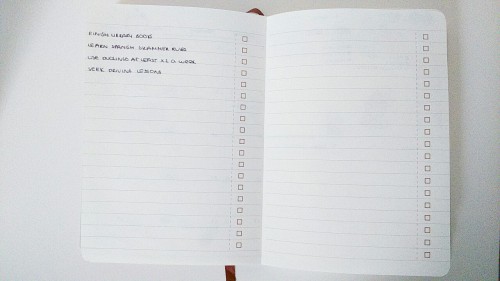 FINISH LIBRARY BOOK
LEARN SPANISH GRAMMAR RULES
USE DUOLINGO AT LEAST X A WEEK
DRIVING LESSONS